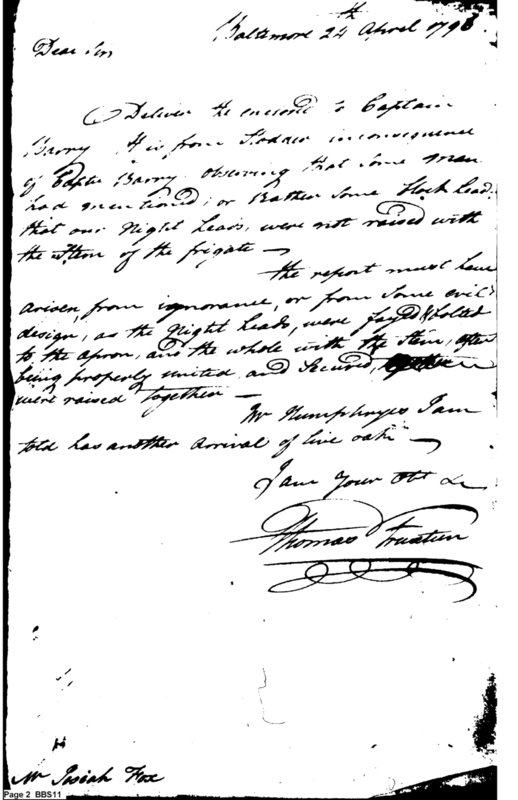 Baltimore 24th April 1796
Dear Sir
Deliver the enclosed to Captain
Barry. It is from Stodder in consequence
of Captn Barry observing that some man
had mentioned, or Rather some Block head,
that our Night heads, were not raised with
the Stem of the frigate —
the report must have
arisen from ignorance, or from some evil
design, as the Night heads, were fayd & bolted
to the apron, and the whole with the Stem, after
being properly united and secured,
were raised together —
Mr Humphreys I am
told has another arrival of live oak —
I am Your Obt &c
Thomas Truxtun
Mr Josiah Fox
Page 2 BBS11